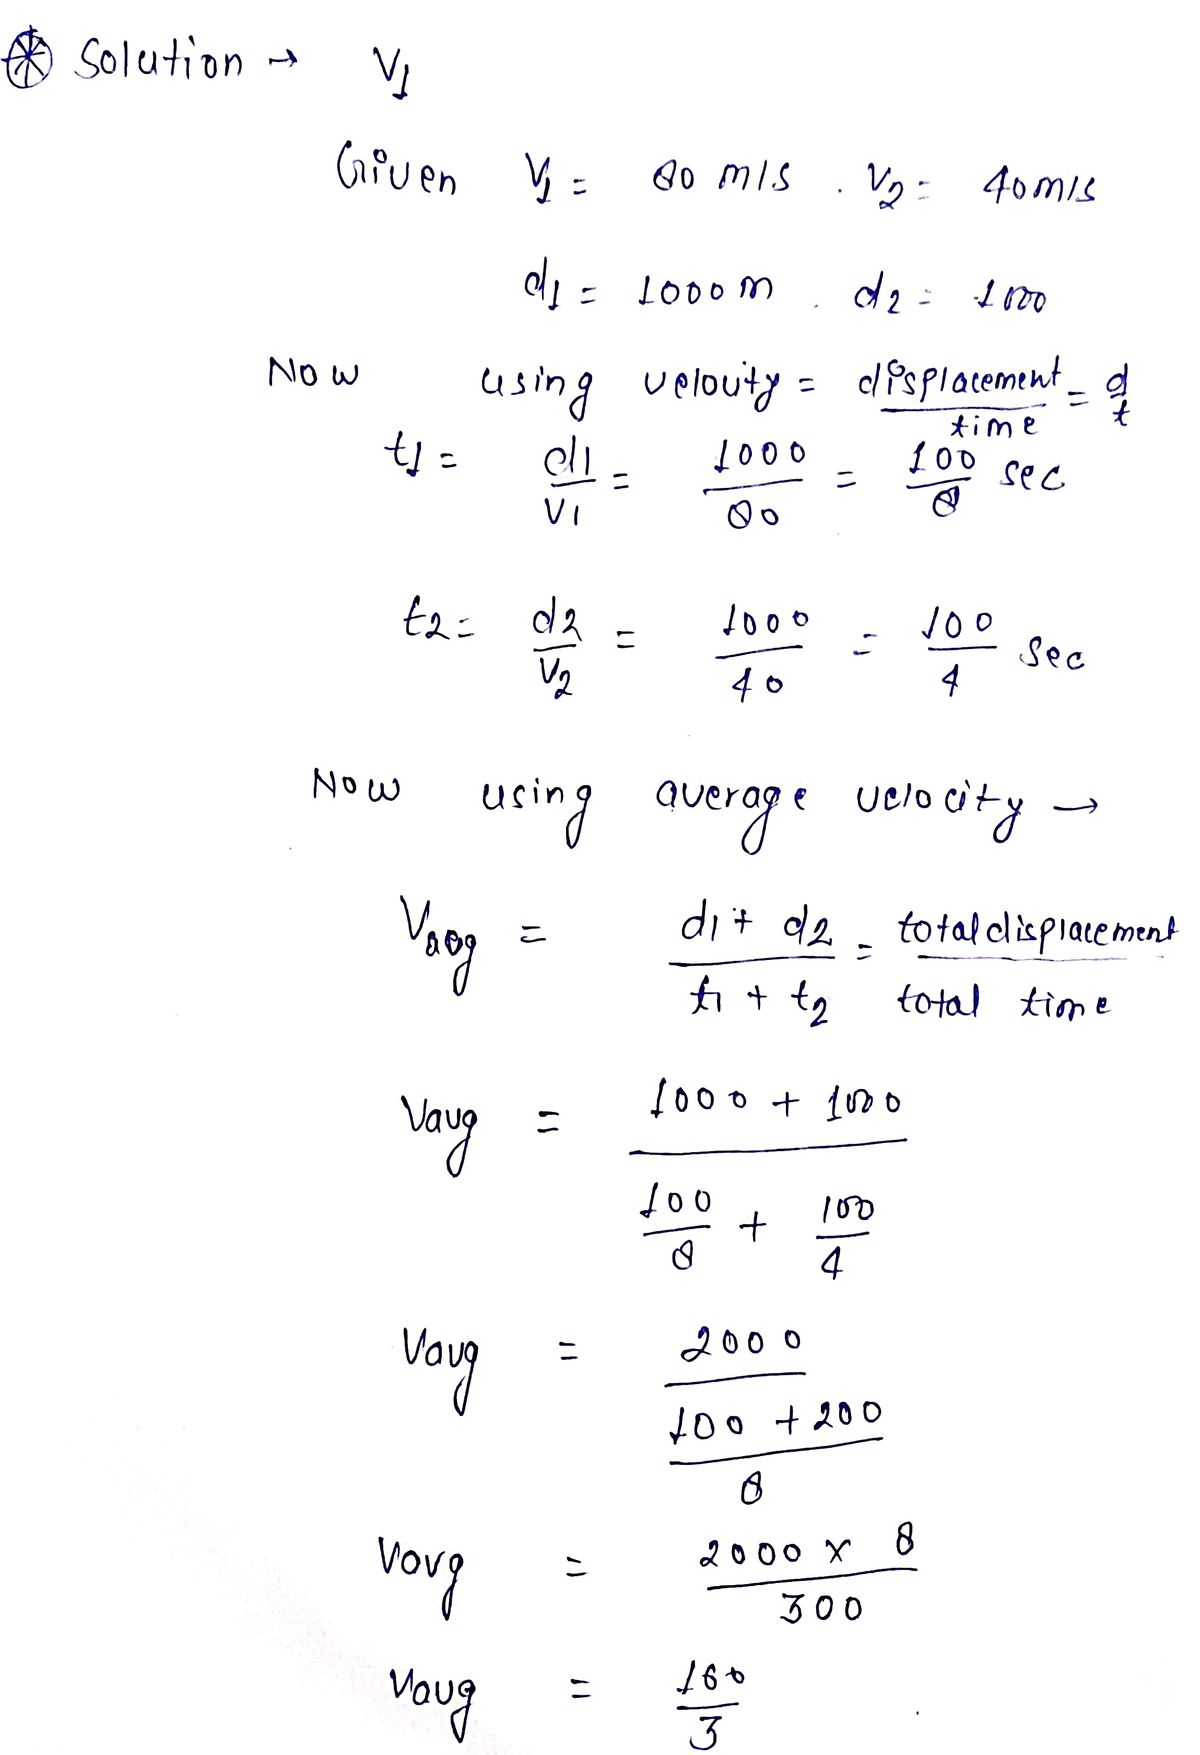 Solution → V1
Given V1 = 80 m/s . V2 = 40m/s
d1 = 1000 m . d2 = 1000
Now using velouity = displacement/time = d/t
t1 = d1/V1 = 1000/80 = 100/8 sec
t2 = d2/V2 = 1000/40 = 100/4 sec
Now using average velocity →
Vavg = d1 + d2/t1 + t2 = total displacement/total time
Vavg = 1000 + 1000
100/8 + 100/4
Vavg = 2000
100 + 200/8
Vavg = 2000 x 8/300
Vavg = 160/3